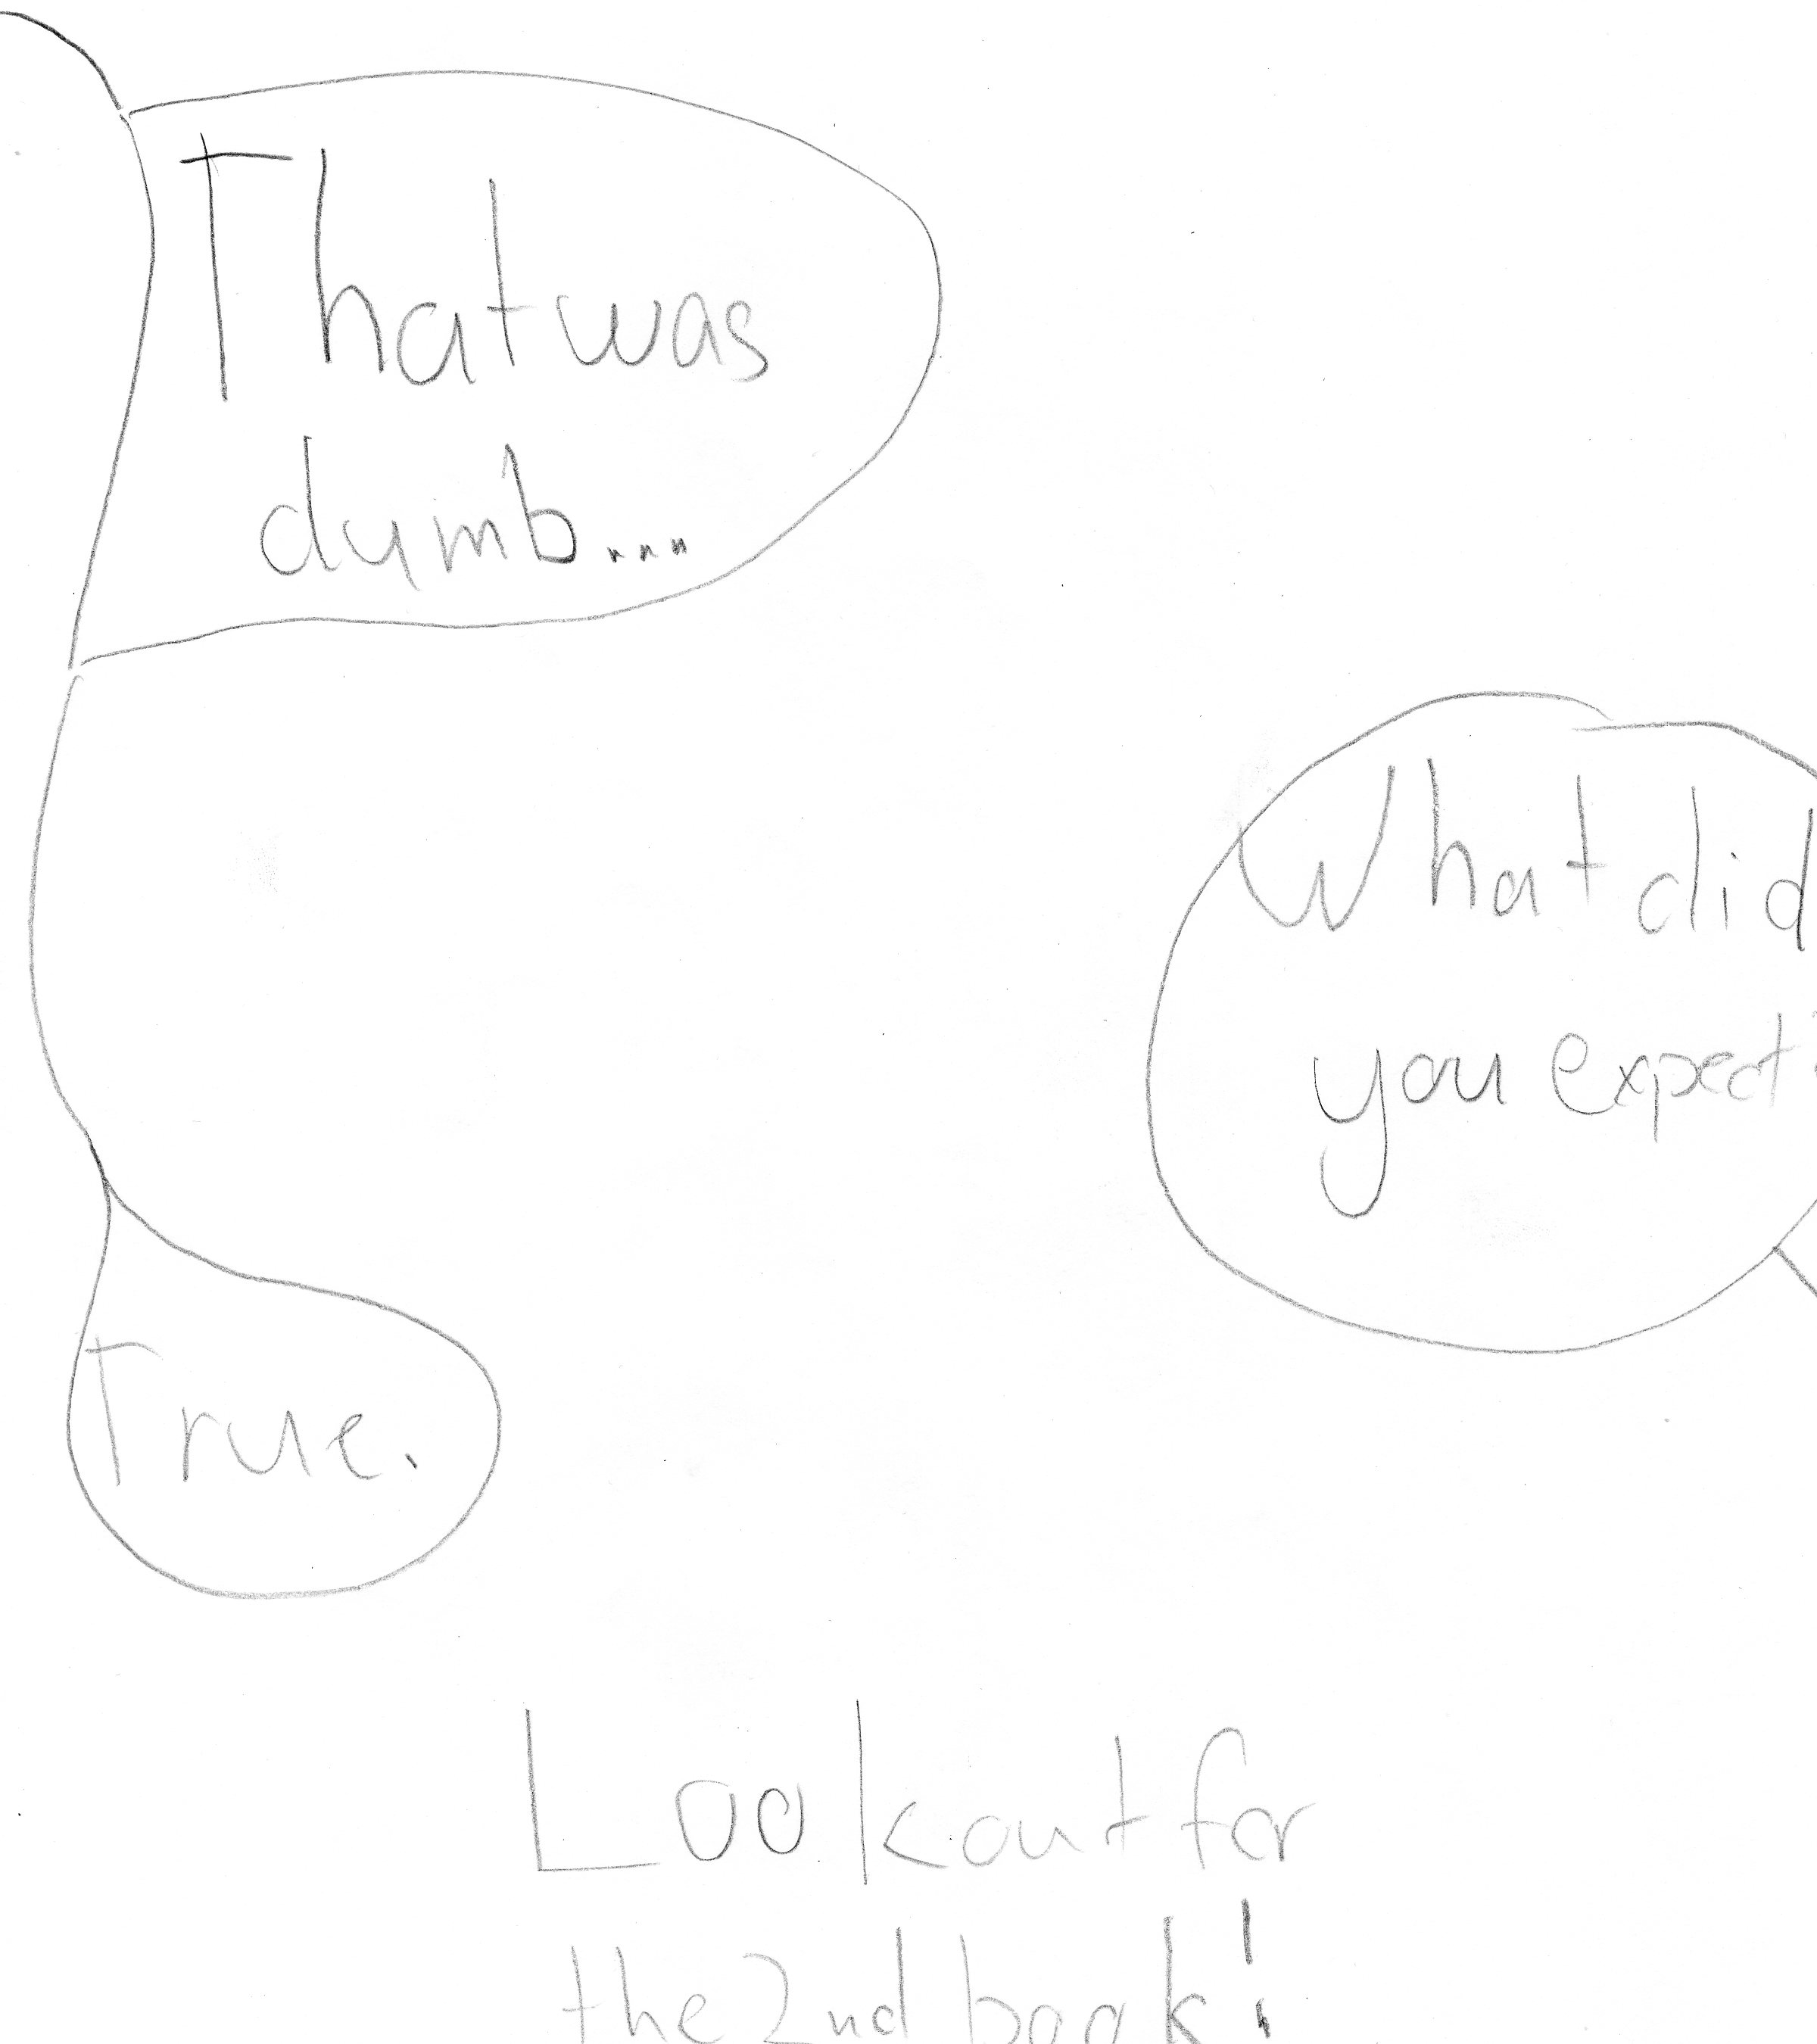 That was
dumb...
What did
you expect
True.
Look out for
the 2nd book!